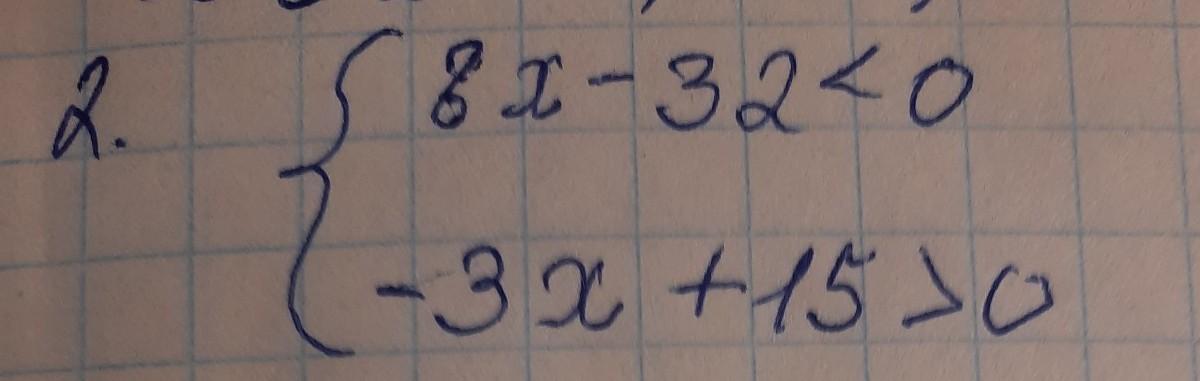 2. { 8x - 32 < 0
-3x + 15 > 0